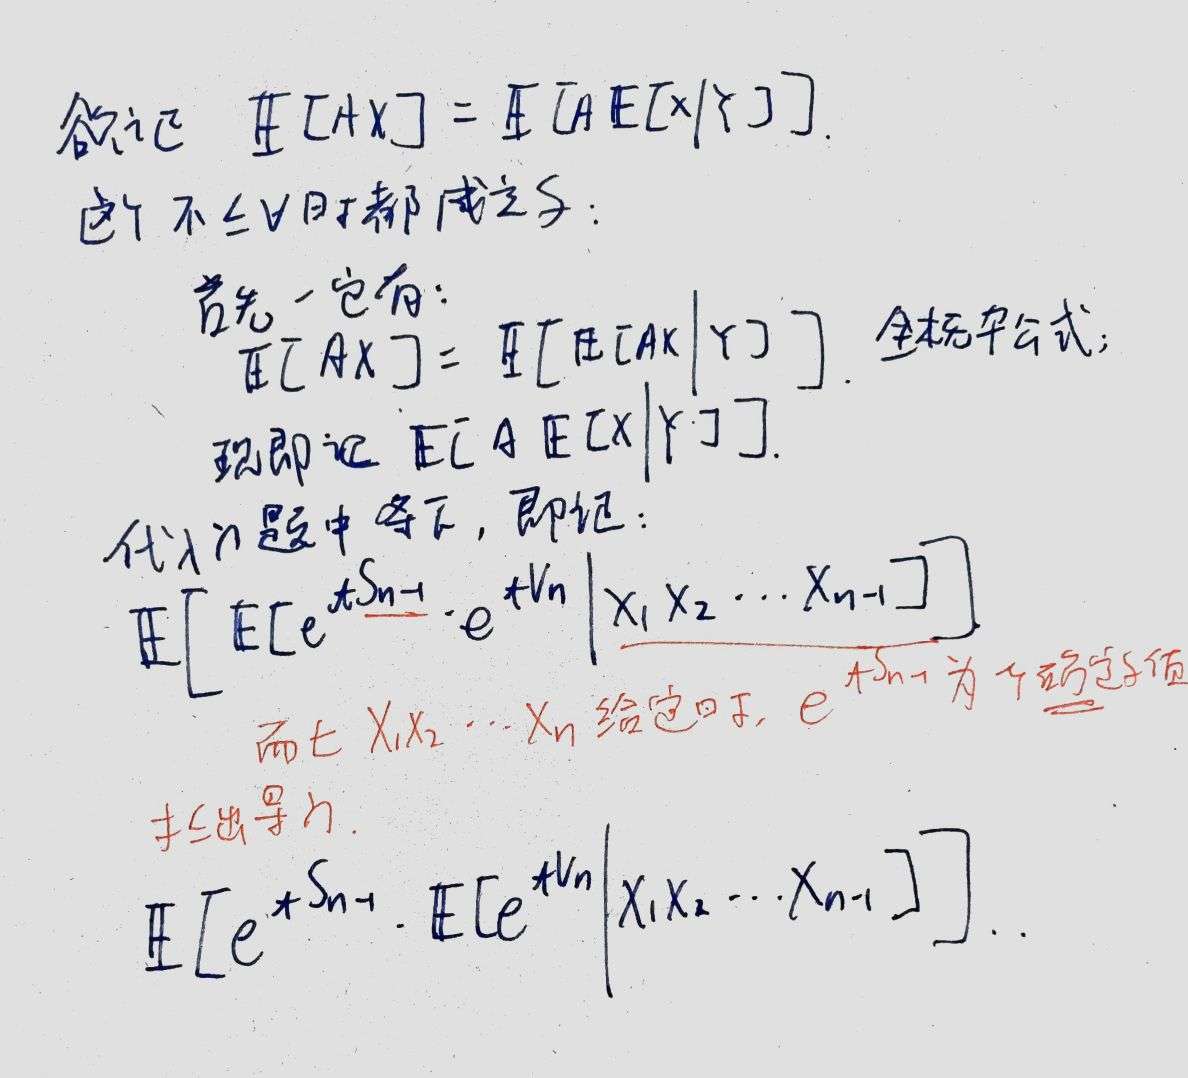 欲证 𝔼[AX] = 𝔼[A𝔼[X|Y]].
这个不是∀时都成立的:
首先一定有:
𝔼[AX] = 𝔼[𝔼[AX|Y]]. 全概率公式;
现即证 𝔼[A𝔼[X|Y]].
代入题中等下, 即证:
𝔼[𝔼[e^{tS_{n-1}}·e^{tV_n}|X₁X₂···X_{n-1}]]
而在X₁X₂···Xₙ给定时, e^{tS_{n-1}}为个确定的值
𝔼[e^{tS_{n-1}}·𝔼[e^{tV_n}|X₁X₂···X_{n-1}]]..